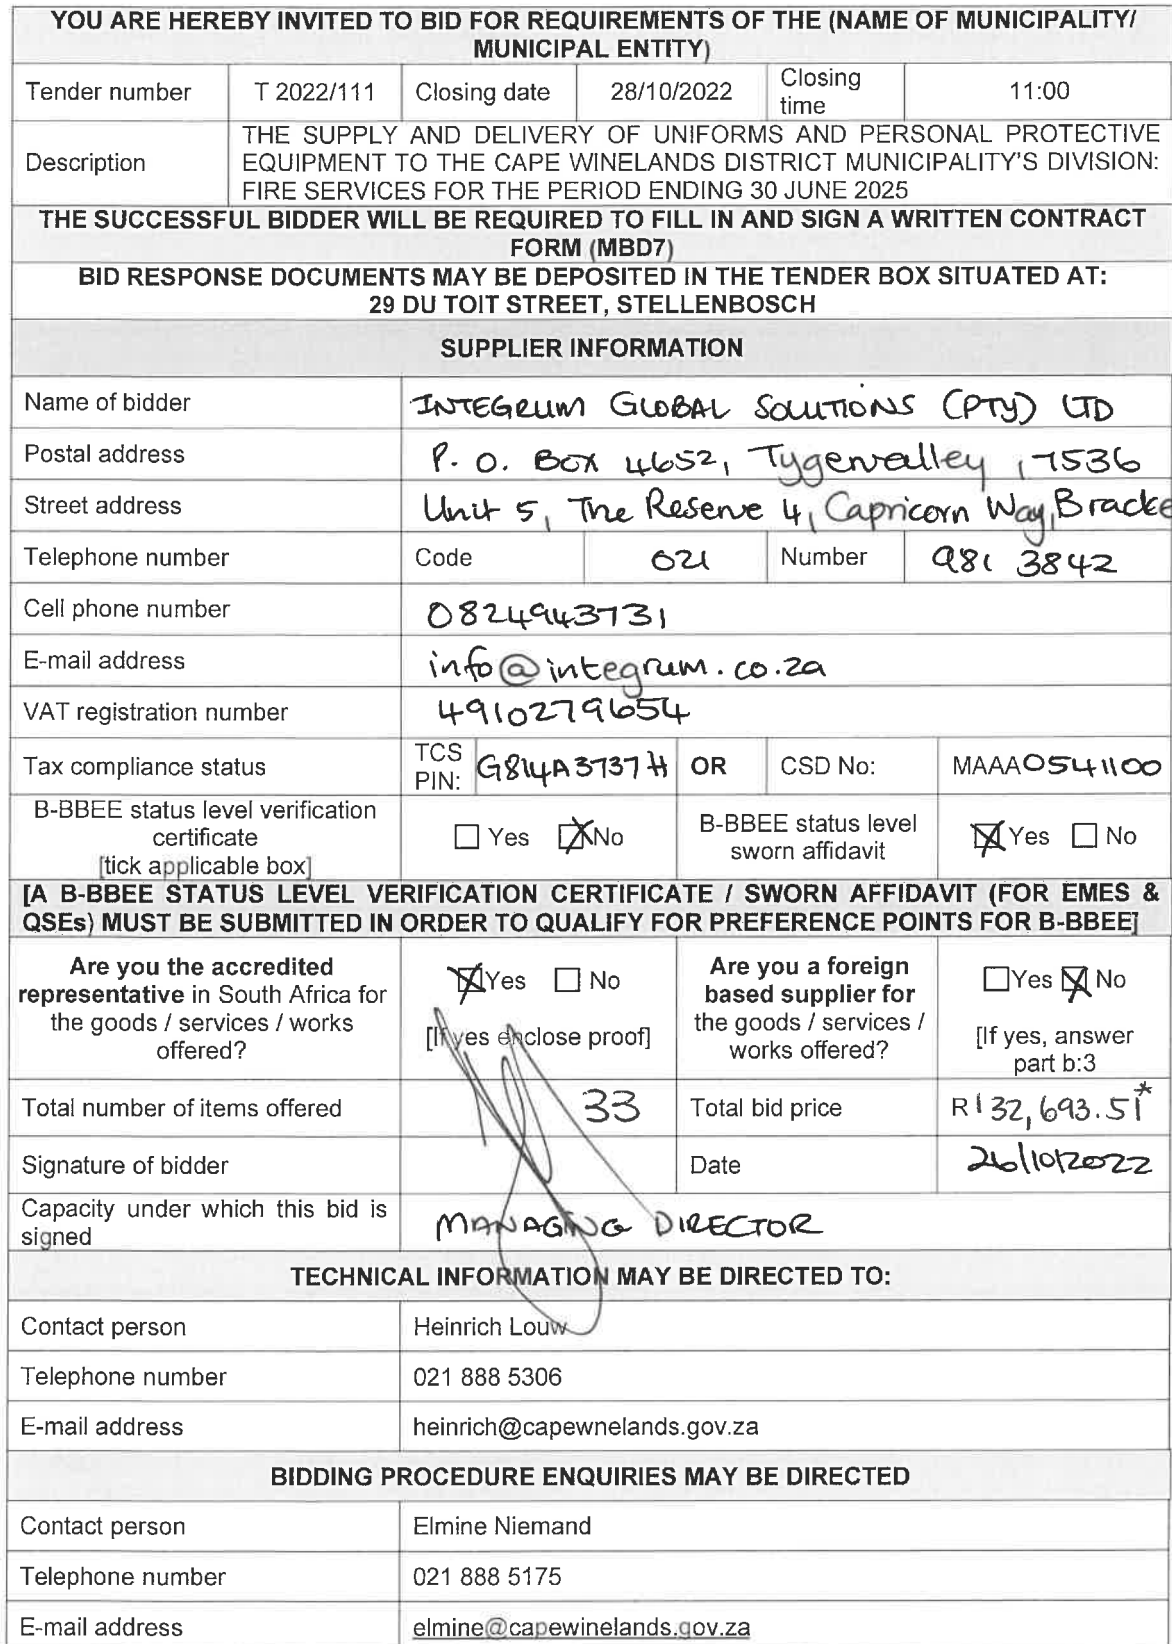 YOU ARE HEREBY INVITED TO BID FOR REQUIREMENTS OF THE (NAME OF MUNICIPALITY/
MUNICIPAL ENTITY)
Tender number T 2022/111 Closing date 28/10/2022 Closing time 11:00
Description
THE SUPPLY AND DELIVERY OF UNIFORMS AND PERSONAL PROTECTIVE
EQUIPMENT TO THE CAPE WINELANDS DISTRICT MUNICIPALITY'S DIVISION:
FIRE SERVICES FOR THE PERIOD ENDING 30 JUNE 2025
THE SUCCESSFUL BIDDER WILL BE REQUIRED TO FILL IN AND SIGN A WRITTEN CONTRACT
FORM (MBD7)
BID RESPONSE DOCUMENTS MAY BE DEPOSITED IN THE TENDER BOX SITUATED AT:
29 DU TOIT STREET, STELLENBOSCH
SUPPLIER INFORMATION
Name of bidder INTEGRUM GLOBAL SOLUTIONS (PTY) LTD
Postal address P. O. Box 4652, Tygervalley, 7536
Street address Unit 5, The Reserve 4, Capricorn Way, Bracke
Telephone number Code 021 Number 981 3842
Cell phone number 0824943731
E-mail address info@integrum.co.za
VAT registration number 4910279654
Tax compliance status TCS PIN: G814A3737H OR CSD No: MAAA0541100
B-BBEE status level verification
certificate
[tick applicable box]
Yes No
B-BBEE status level
sworn affidavit
Yes No
[A B-BBEE STATUS LEVEL VERIFICATION CERTIFICATE / SWORN AFFIDAVIT (FOR EMES &
QSEs) MUST BE SUBMITTED IN ORDER TO QUALIFY FOR PREFERENCE POINTS FOR B-BBEE]
Are you the accredited
representative in South Africa for
the goods / services / works
offered?
Yes No
[If yes enclose proof]
Are you a foreign
based supplier for
the goods / services /
works offered?
Yes No
[If yes, answer
part b:3
Total number of items offered 33 Total bid price R132,693.51*
Signature of bidder Date 26/10/2022
Capacity under which this bid is
signed
MANAGING DIRECTOR
TECHNICAL INFORMATION MAY BE DIRECTED TO:
Contact person Heinrich Louw
Telephone number 021 888 5306
E-mail address heinrich@capewnelands.gov.za
BIDDING PROCEDURE ENQUIRIES MAY BE DIRECTED
Contact person Elmine Niemand
Telephone number 021 888 5175
E-mail address elmine@capewinelands.gov.za